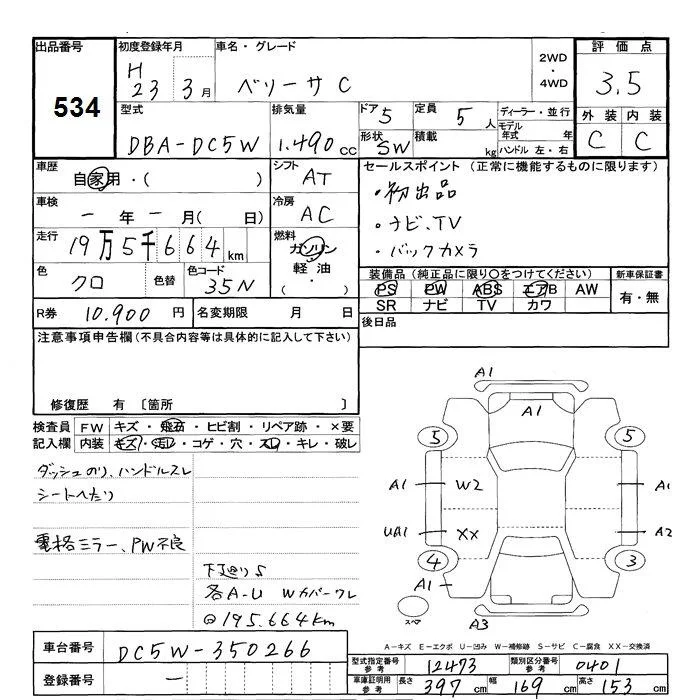 出品番号
534
初度登録年月
H 23 3月
車名・グレード
ベリーサ C
2WD
・
4WD
評価点
3.5
外装 内装
C C
型式
DBA-DC5W
排気量
1.490 cc
ドア 5
定員 5人
形状 SW
積載 kg
ディーラー・並行
モデル年式 年
ハンドル 左・右
車歴
自家用・( )
シフト AT
車検
ー年ー月( 日)
冷房 AC
走行
19万5千664km
燃料
ガソリン
軽油
( ・ )
色 クロ
色替
色コード 35N
R券 10.900円
名変期限 月 日
セールスポイント (正常に機能するものに限ります)
・初出品
・ナビ、TV
・バックカメラ
装備品 (純正品に限り○をつけてください)
PS PW ABS エアB AW
SR ナビ TV カワ
新車保証書
有・無
後日品
注意事項申告欄(不具合内容等は具体的に記入して下さい)
修復歴 有 〔箇所 〕
検査員記入欄
FW キズ・飛石・ヒビ割・リペア跡・×要
内装 キズ・汚レ・コゲ・穴・スレ・キレ・破レ
ダッシュのり、ハンドルスレ
シートへたり
電格ミラー、PW不良
下廻りS
各A-U Wカバーワレ
@195.664km
A1
A1
5 5
A1 W2 A1
UA1 XX A2
4 3
A1
スペア
A3
A-キズ E-エクボ U-凹み W-補修跡 S-サビ C-腐食 XX-交換済
車台番号 DC5W-350266
登録番号 ー
型式指定番号 参考 12473
類別区分番号 参考 0401
車庫証明用 参考
長さ 397cm 幅 169cm 高さ 153cm